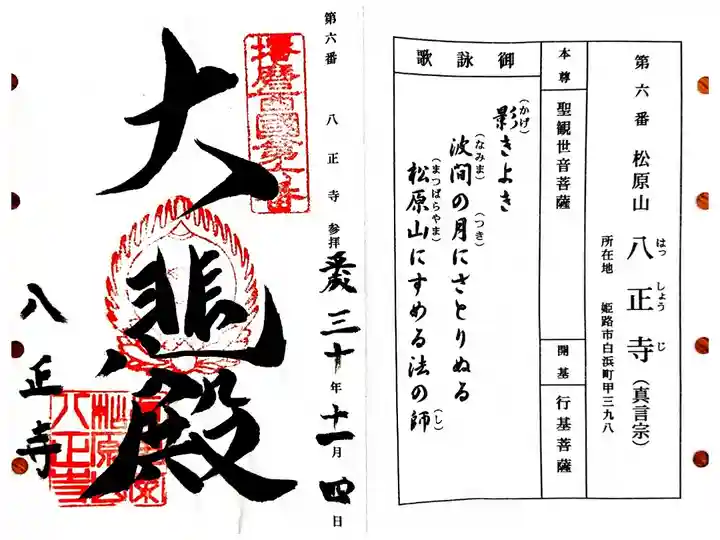 第六番 松原山 八正寺(真言宗)
はっしょうじ
所在地 姫路市白浜町甲三九八
本尊 聖観世音菩薩
開基 行基菩薩
御詠歌
影(かげ)きよき
波間(なみま)の月(つき)にさとりぬる
松原山(まつばらやま)にすめる法の師(し)
第六番 八正寺 参拝 平成三十年十一月四日
播磨西國第六番
大悲殿
八正寺
松原山
八正寺